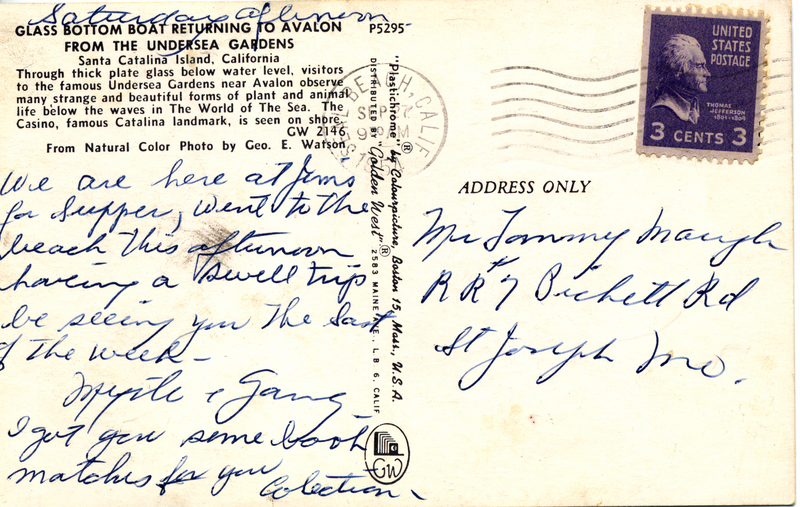 Saturday afternoon
GLASS BOTTOM BOAT RETURNING TO AVALON
FROM THE UNDERSEA GARDENS
Santa Catalina Island, California
Through thick plate glass below water level, visitors
to the famous Undersea Gardens near Avalon observe
many strange and beautiful forms of plant and animal
life below the waves in The World of The Sea. The
Casino, famous Catalina landmark, is seen on shore.
GW 2146
From Natural Color Photo by Geo. E. Watson
P5295
We are here at Jims
for supper, went to the
beach this afternoon
having a swell trip
be seeing you the last
of the week -
Myrtle & Gang
I got you some book
matches for you
Colection -
"Plastichrome"® by Colourpicture, Boston 15, Mass., U.S.A.
DISTRIBUTED BY "Golden West"® 2583 MAINE AVE., L.B. 6, CALIF
GW
BEACH, CALIF
SEP
UNITED
STATES
POSTAGE
THOMAS
JEFFERSON
1801-1809
3 CENTS 3
ADDRESS ONLY
Mr Tommy
RR #7 Pickett Rd
St Joseph Mo.